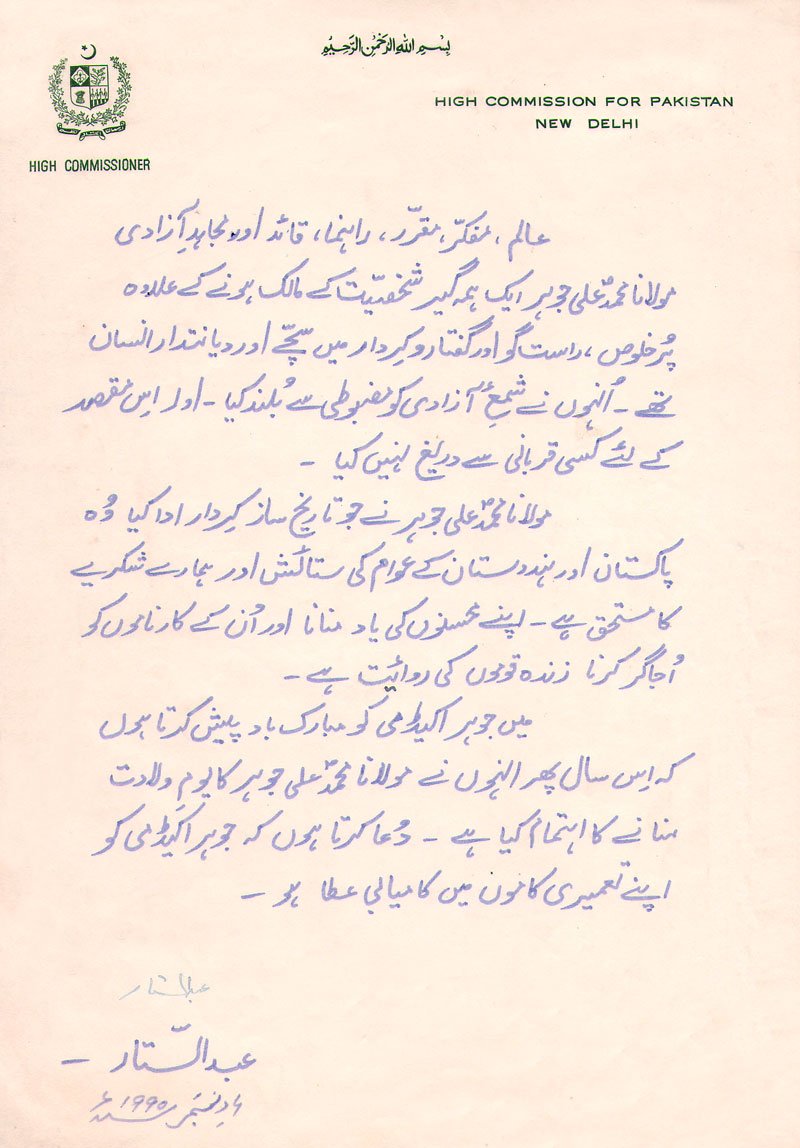 بسم الله الرحمن الرحيم
HIGH COMMISSION FOR PAKISTAN
NEW DELHI
HIGH COMMISSIONER
عالم، مفکّر، مقرّر، راہنما، قائد اور مجاہدِ آزادی
مولانا محمد علی جوہر ایک ہمہ گیر شخصیّت کے مالک ہونے کے علاوہ
پُرخلوص، راست گو اور گفتار و کِردار میں سچّے اور دیانتدار انسان
تھے۔ اُنہوں نے شمعِ آزادی کو مضبوطی سے بُلند کیا۔ اور اِس مقصد
کے لئے کسی قربانی سے دریغ نہیں کیا۔
مولانا محمد علی جوہر نے جو تاریخ ساز کِردار ادا کیا وُہ
پاکستان اور ہندوستان کے عوام کی ستائش اور ہمارے شکریے
کا مستحق ہے۔ اپنے محسنوں کی یاد منانا اور اُن کے کارناموں کو
اُجاگر کرنا زندہ قوموں کی روائیت ہے۔
میں جوہر اکیڈمی کو مبارک باد پیش کرتا ہوں
کہ اِس سال پھر انہوں نے مولانا محمد علی جوہر کا یومِ ولادت
منانے کا اہتمام کیا ہے۔ دُعا کرتا ہوں کہ جوہر اکیڈمی کو
اپنے تعمیری کاموں میں کامیابی عطا ہو۔
عبدالستار
عبدالسّتار
۶ دِسَمبَر ۱۹۹۰ء